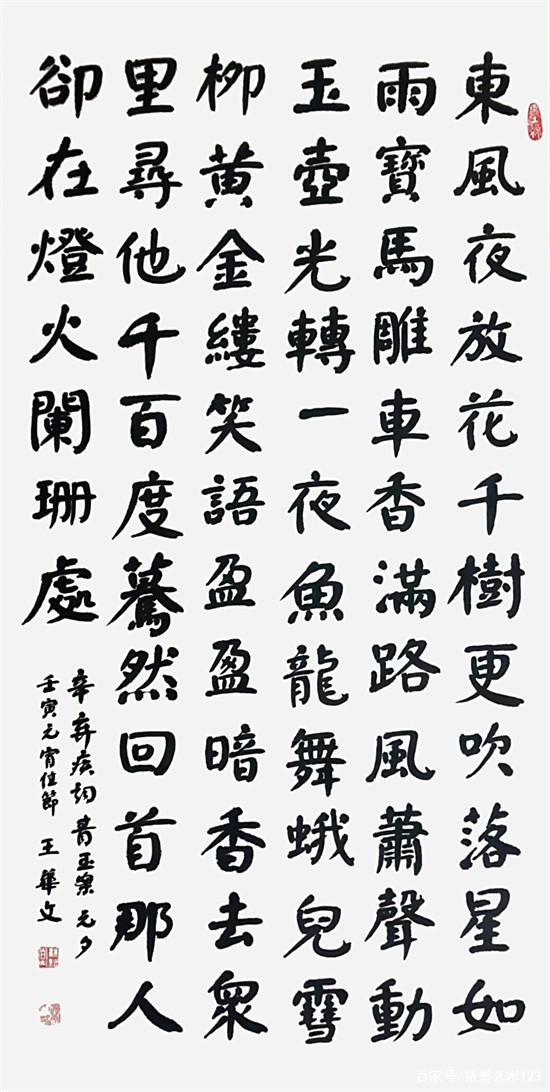 東風夜放花千樹更吹落星如
雨寶馬雕車香滿路風蕭聲動
玉壺光轉一夜魚龍舞蛾兒雪
柳黄金縷笑語盈盈暗香去衆
里尋他千百度驀然回首那人
卻在燈火闌珊處
辛弃疾詞青玉案 元夕
壬寅元宵佳節 王華文
百家号/墨艺术123